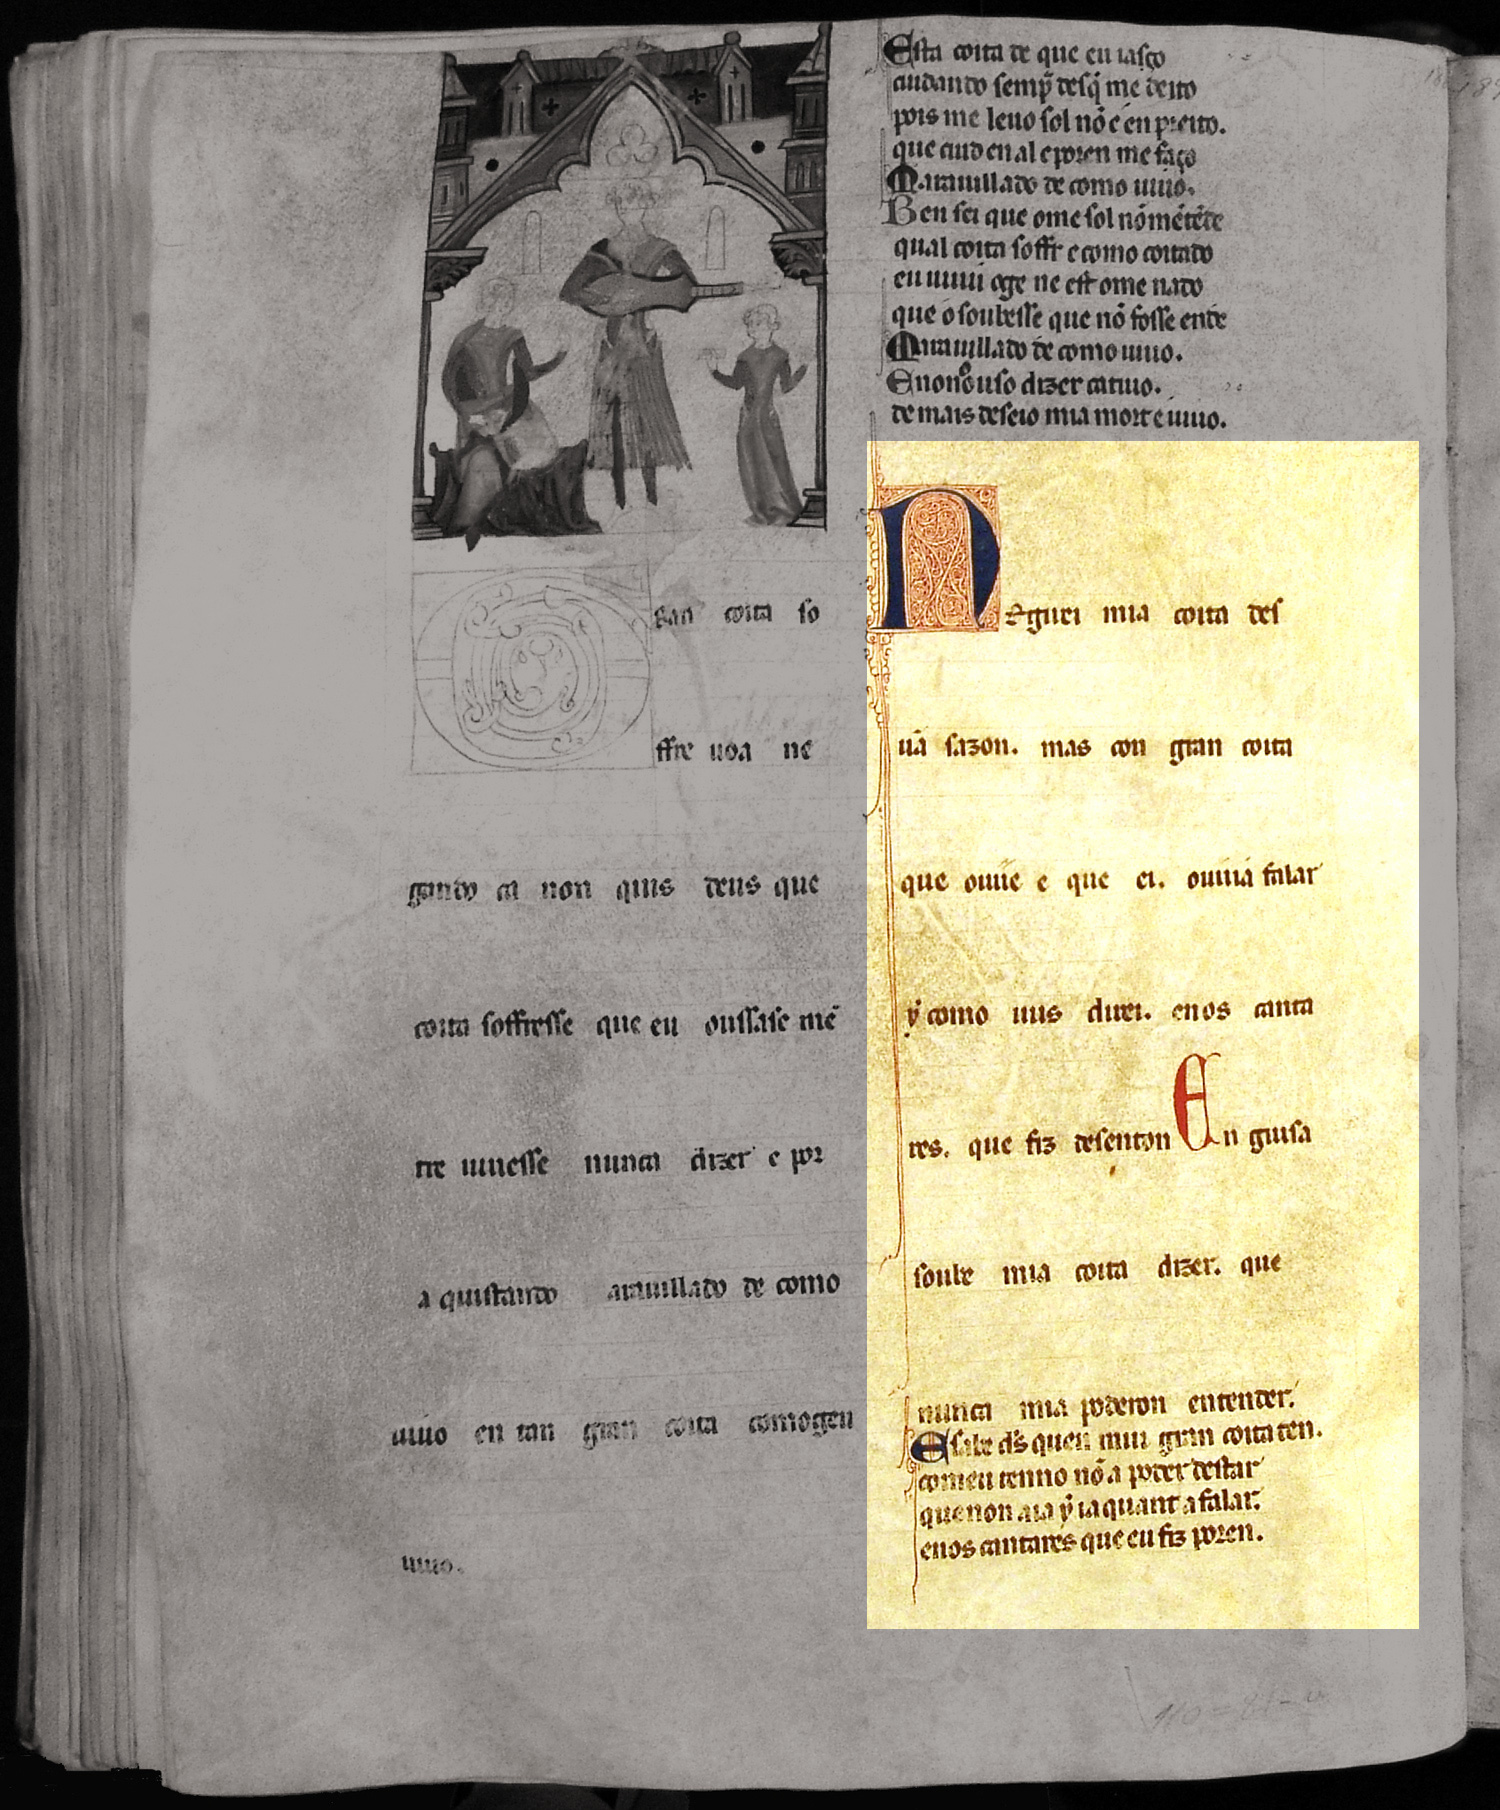 gran coita so
ffre uoa nẽ
gando ca non quis deus que
coita soffresse que eu oussasse mẽ
tre uiuesse nunca dizer e por
a quistando arauillado de como
uiuo en tan gran coita comogeu
uiuo.
Esta coita de que eu iasço
cuidando semp̃ desq̃ me deito
pois me leuo sol nõ é en preito.
que cuid en al e poren me faço
Marauillado de como uiuo.
Ben sei que ome sol nõ mẽtẽde
qual coita soffr e como coitado
eu uiuui oge ne est ome nado
que o soubesse que nõ fosse ende
Marauillado de como uiuo.
E non ouso dizer catiuo.
de mais deseio mia mort e uiuo.
Neguei mia coita des
uã sazon. mas con gran coita
que ouue e que ei. ouuiá falar
ẏ como uus direi. enos canta
res. que fiz desenton En guisa
soube mia coita dizer. que
nunca mia poderon entender.
E sabe d̃s quen mui gran coita ten.
com eu tenno nõ a poder destar
que non aia ẏ ia quant a falar.
enos cantares que eu fiz poren.